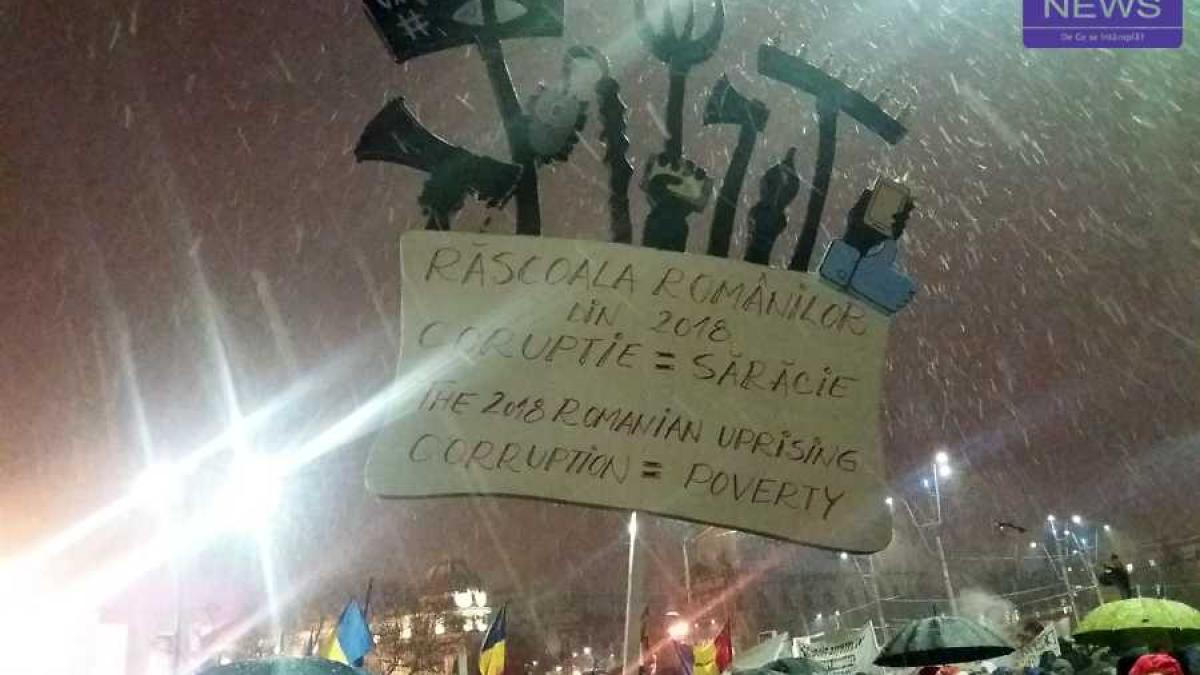 NEWS
De Ce se întâmplă?
#
RĂSCOALA ROMÂNILOR
DIN 2018
CORUPTIE = SĂRĂCIE
THE 2018 ROMANIAN UPRISING
CORRUPTION = POVERTY